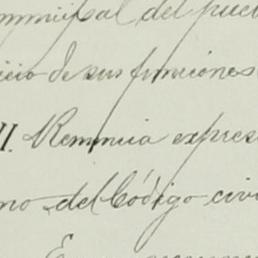 municipal del pue
icio de sus funciones
VI. Renuncia expres
no del Código civi